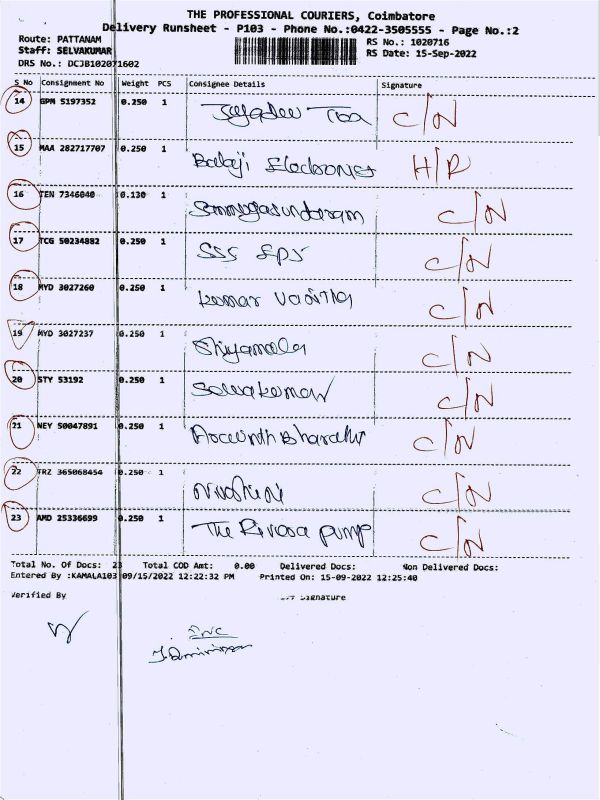 THE PROFESSIONAL COURIERS, Coimbatore
Delivery Runsheet - P103 - Phone No.:0422-3505555 - Page No.:2
Route: PATTANAM
RS No.: 1020716
Staff: SELVAKUMAR
RS Date: 15-Sep-2022
DRS No.: DCJB102071602
S No Consignment No Weight PCS Consignee Details Signature
14 GPM 5197352 0.250 1 C/N
15 MAA 282717707 0.250 1 Balaji Electronics H/R
16 TEN 7346040 0.130 1 C/N
17 TCG 50234882 0.250 1 SSS C/N
18 MYD 3027260 0.250 1 Kumar C/N
19 MYD 3027237 0.250 1 Shiyamala C/N
20 STY 53192 0.250 1 Selvakumar C/N
21 NEY 50047891 0.250 1 Bharathi C/N
22 TRZ 365068454 0.250 1 C/N
23 AMD 25336699 0.250 1 The pump C/N
Total No. Of Docs: 23 Total COD Amt: 0.00 Delivered Docs: Non Delivered Docs:
Entered By :KAMALA103 09/15/2022 12:22:32 PM Printed On: 15-09-2022 12:25:40
Verified By Signature